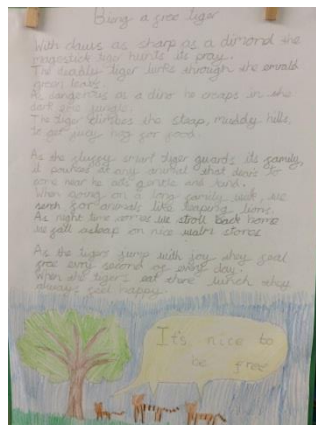 Being a free tiger
With claws as sharp as a dimond the
magestick tiger hunts its pray.
The deadly tiger lurks through the emrald
green leavs
As dangerous as a dino he creaps in the
dark jungle.
The tiger climbes the steap, muddy hills,
to get juicy for good.
As the fluffy smart tiger guards its family,
it pounces at any animal that dears to
come near he acts gentle and kind.
When going on a long family walk, we
serch for animals like leaping lions.
As night time comes we stroll back home
we fall asleap on nice warm stones
As the tigers jump with joy they feal
free evry second of every day.
When the tigers eat there lunch they
always feel happy.
It's nice to
be free